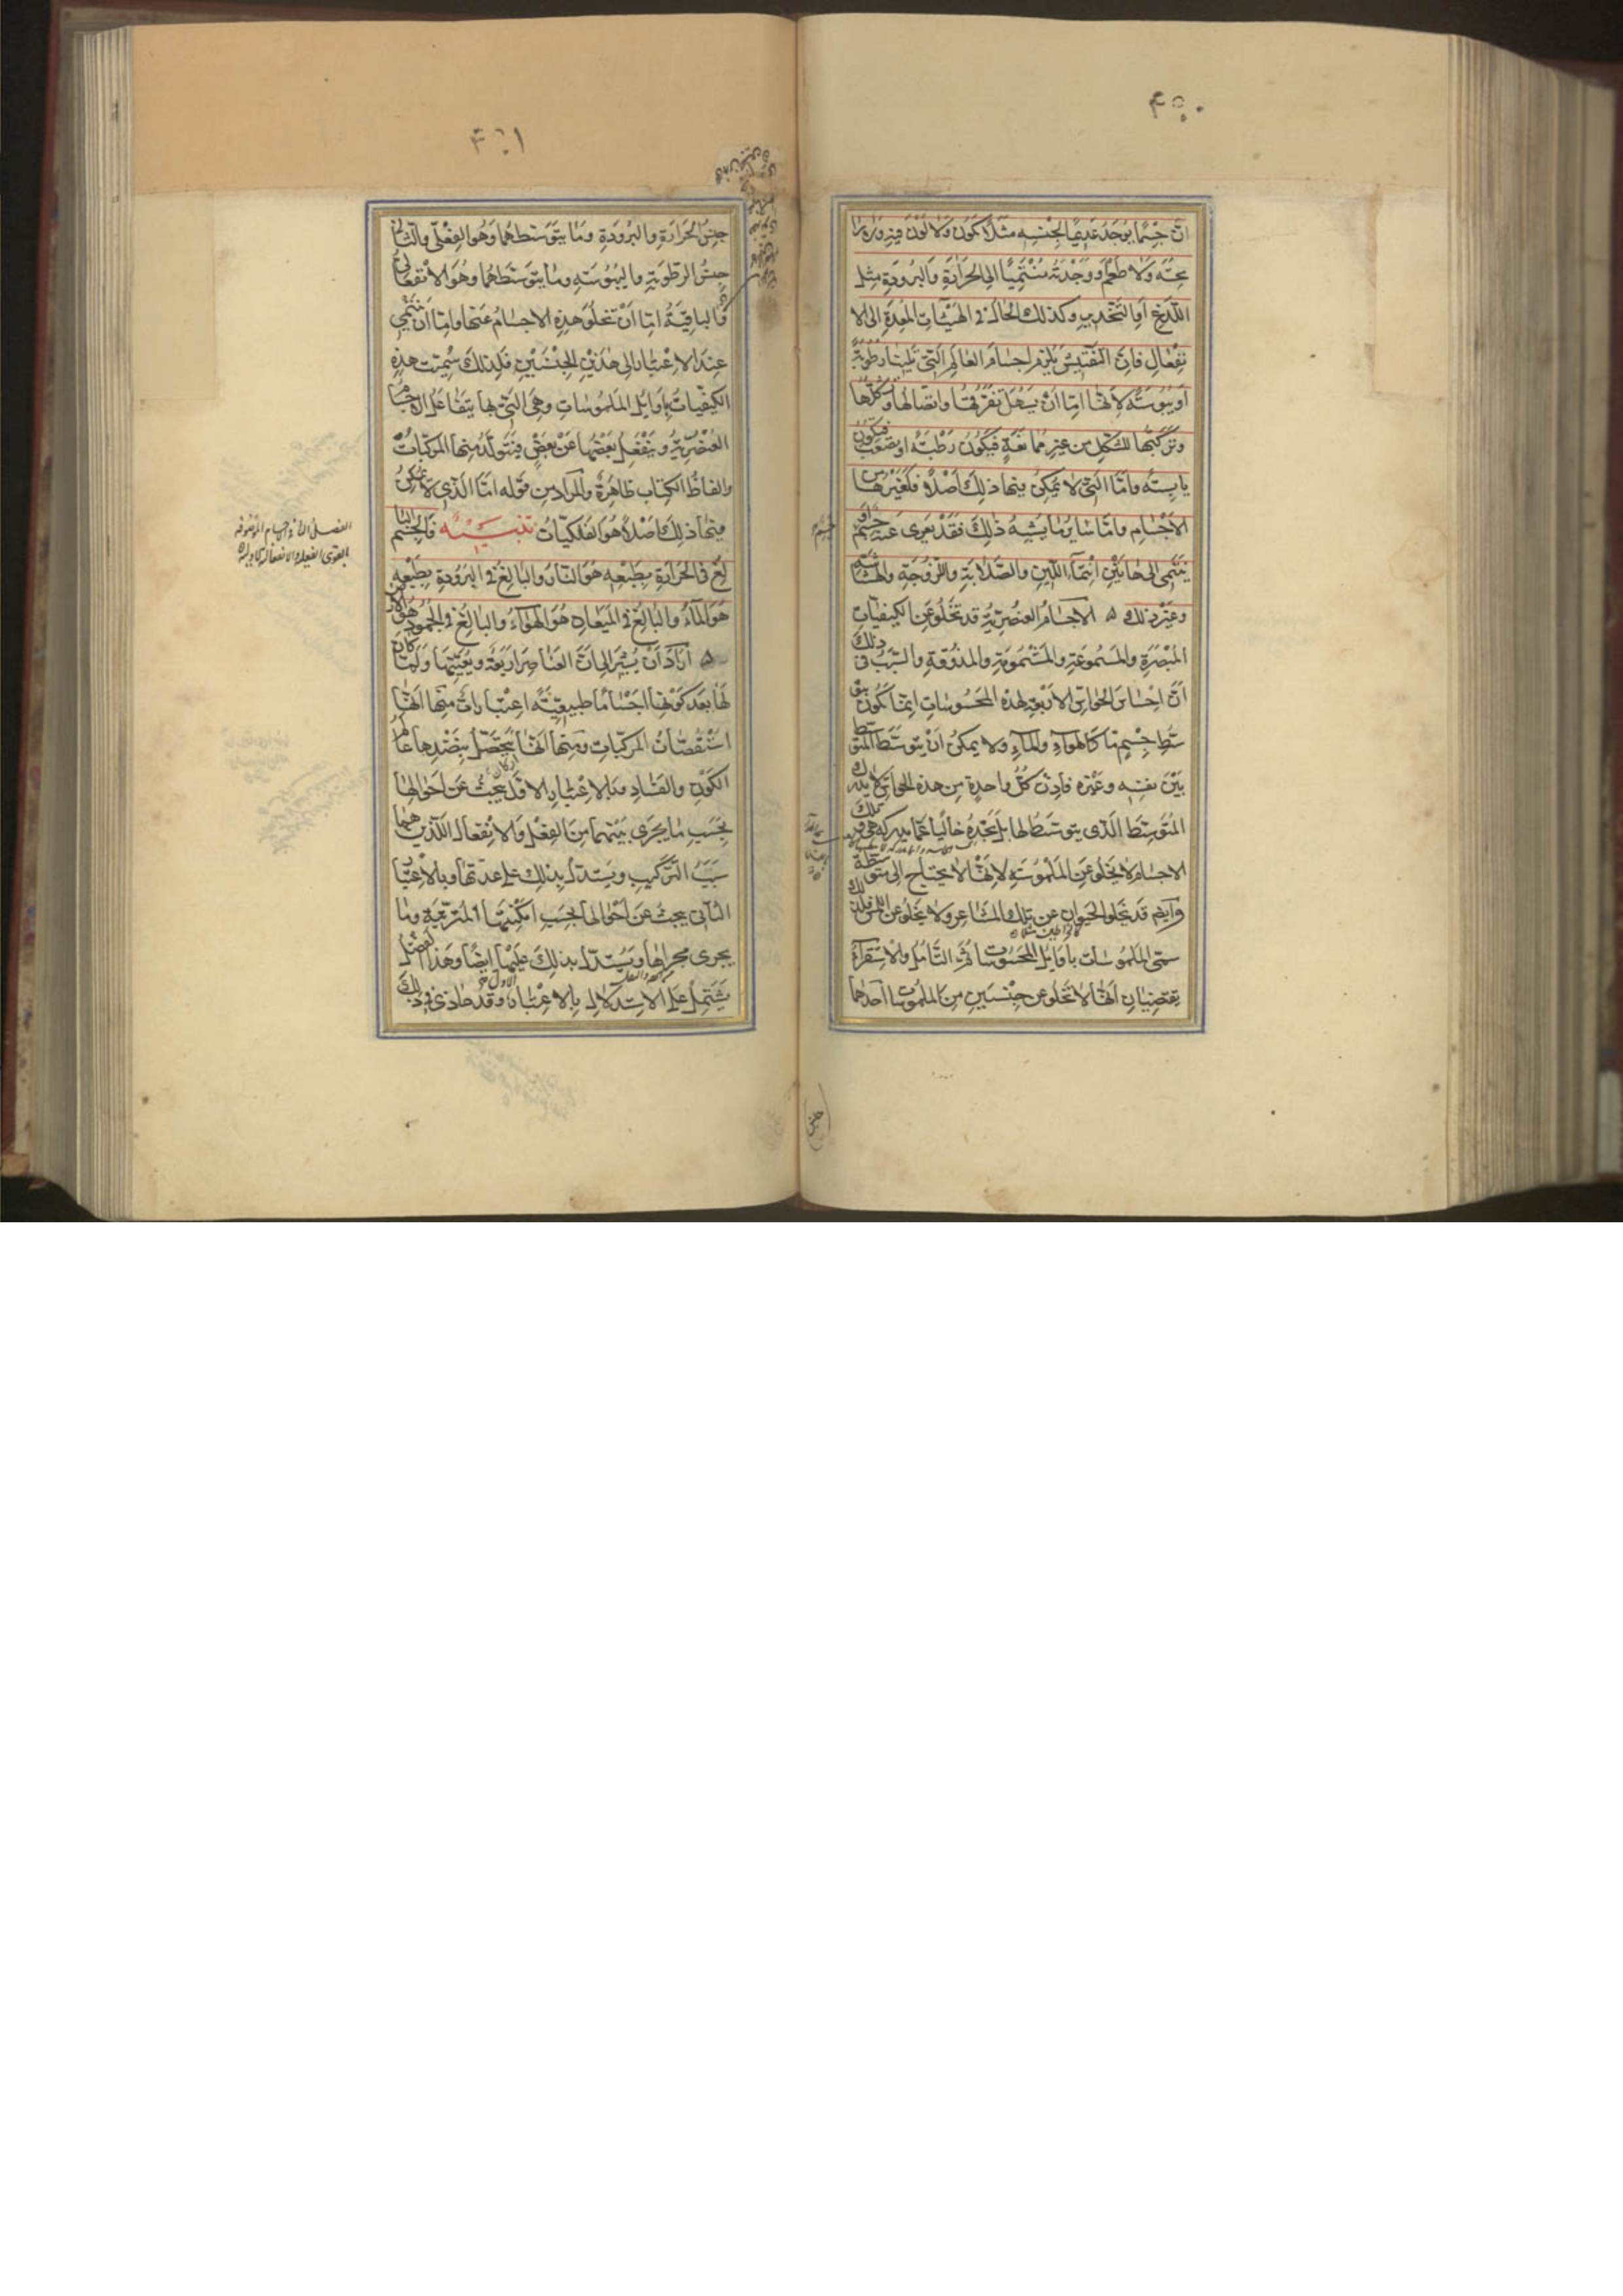 ٤٥٠
انّ جسمًا يوجد عديمًا لجنسه مثلًا يكون ولا لون فيه ولا را
يحته ولا طعم ووجدته منتميًا الى الحرارة والبرودة مثل
اللّذع او التخدير وكذلك الحال في الهيئات المعدة الى الا
نفعال فانّ التفتيش يلزم اجسام العالم التي تلينا رطوبة
او يبوسة لانّها امّا ان يسهل تفرّقها واتصالها وتشكّلها
وتركها للشكل من غير ممانعة فيكون رطبة او يصعب فيكون
يابسة وامّا التي لا يمكن فيها ذلك اصلًا فلغيرها من
الاجسام وامّا سائر ما يشبه ذلك فقد يعرى عنه جسم او
ينتمي الى هاتين انتماء اللّين والصّلابة واللّزوجة والهشاشة
وغير ذلك ۵ الاجسام العنصريّة قد تخلو عن الكيفيّات
المبصرة والمسموعة والمشمومة والمذوقة والسّبب في ذلك
انّ احساس الحواسّ الاربعة لهذه المحسوسات انّما يكون بتو
سّط جسم ما كالهواء والماء ولا يمكن ان يتوسّط المتوسّط
بين نفسه وغيره فاذن كلّ واحدة من هذه الحواسّ لا يدرك
المتوسّط الّذي يتوسّط لها بل تجده خاليًا عمّا يدركه هي فتلك
الاجسام لا يخلو عن الملموسة لانّها لا يحتاج الى متوسّطة
وايضًا قد تخلو الحيوان عن تلك المشاعر ولا يخلو عن اللمس فلذلك
سمّى الملموسات باوايل المحسوسات ثمّ التّامّل والاستقراء
يقتضيان انّها لا تخلو عن جنسين من الملموسات احدهما
جنس
٤٥١
جنس الحرارة والبرودة وما يتوسّطهما وهو الفعلي والثاني
جنس الرّطوبة واليبوسة وما يتوسّطهما وهو الانفعالي
والباقية امّا ان تخلو هذه الاجسام عنها وامّا ان تنتمي
عند الاعتبار الى هذين الجنسين فلذلك سمّيت هذه
الكيفيّات باوايل الملموسات وهي التي بها يتفاعل الاجسام
العنصريّة وينفعل بعضها عن بعض فيتولّد منها المركّبات
والفاظ الكتاب ظاهرة والمراد من قوله امّا الّذي لا يمكن
فيها ذلك اصلًا هو الفلكيّات تنبيه فالجسم البا
لغ في الحرارة بطبعه هو النار والبالغ في البرودة بطبعه
هو الماء والبالغ في الميعان هو الهواء والبالغ في الجمود هو الارض
۵ اراد ان يشير الى انّ العناصر اربعة ويعيّنها ولمّا كان
لها بعد كونها اجسامًا طبيعيّة اعتبارات منها انّها
استقصّات المركّبات ومنها انّها يحصل بنضدها عالم
الكون والفساد وبالاعتبار الاوّل يبحث عن احوالها
بحسب ما يجري بينهما من الفعل والانفعال اللّذين هما
سبب التّركيب ويستدلّ بذلك على عدّتها وبالاعتبار
الثّاني يبحث عن احوالها بحسب امكنتها المترتّبة وما
يجري مجراها ويستدلّ بذلك عليها ايضًا وهذا الفصل
يشتمل على الاستدلال بالاعتبار الاول وقد حاذى في ذلك